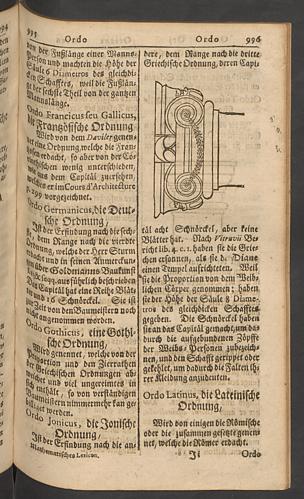 995
Ordo
von der Fußlänge einer Manns-
Person und machten die Höhe der
Säule 6 Diametros des gleichdi-
cken Schafftes, weil die Fußlän-
ge der sechste Theil von der gantzen
Mannslänge.
Ordo Francicus seu Gallicus,
die Frantzösische Ordnung
Wird von dem Daviler genen-
net eine Ordnung, welche die Fran-
zosen erdacht, so aber von der Co-
rinthischen wenig unterschieden,
wie aus dem Capitäl zu ersehen,
welches er im Cours d'Architecture
p. 299 vorgezeichnet.
Ordo Germanicus, die Deut-
sche Ordnung,
Ist der Erfindung nach die sech-
ste, dem Range nach die vierdte
Ordnung, welche der Herr Sturm
erdacht und in seinen Anmerckun-
gen über Goldmanns Baukunst
ausführlich beschrieben
Das Capitäl hat eine Reihe Blät-
ter und 16 Schnörckel. Sie ist
nicht von den Baumeistern noch
nicht angenommen worden.
Ordo Gothicus, eine Gothi-
sche Ordnung,
Wird genennet, welche von der
Proportion und den Zierrathen
der Griechischen Ordnungen ab-
weichet und viel ungereimtes in
sich enthält, so von verständigen
Baumeistern nimmermehr kan ge-
billiget werden.
Ordo Jonicus, die Jonische
Ordnung,
Ist der Erfindung nach die an-
Mathematisches Lexicon.
Ordo
996
dere, dem Range nach die dritte
Griechische Ordnung, deren Capi-
täl acht Schnörckel, aber keine
Blätter hat. Nach Vitruvii Be-
richt lib. 4. c. 1. haben sie die Grie-
chen ersonnen, als sie der Dianæ
einen Tempel aufrichteten. Weil
sie die Proportion von dem Weib-
lichen Cörper genommen; haben
sie der Höhe der Säule 8 Diame-
tros des gleichdicken Schafftes
gegeben. Die Schnörckel haben
sie an das Capitäl gemacht, um da-
durch die aufgebundenen Zöpffe
der Weibs-Personen zubezeich-
nen, und den Schafft gerippt oder
gekehlet, um dadurch die Falten ih-
rer Kleidung anzudeuten.
Ordo Latinus, die Lateinische
Ordnung,
Wird von einigen die Römische
oder die zusammen gesetzte genen-
net, welche die Römer erdacht.
Ji
Ordo